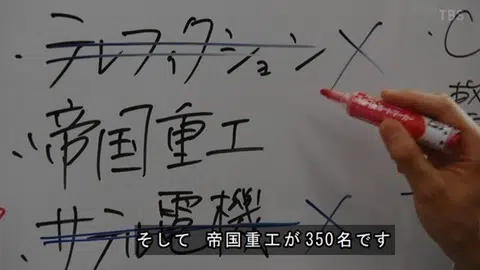 TBS
・テレフィクション ×
・帝国重工
電機 ×
そして 帝国重工が350名です